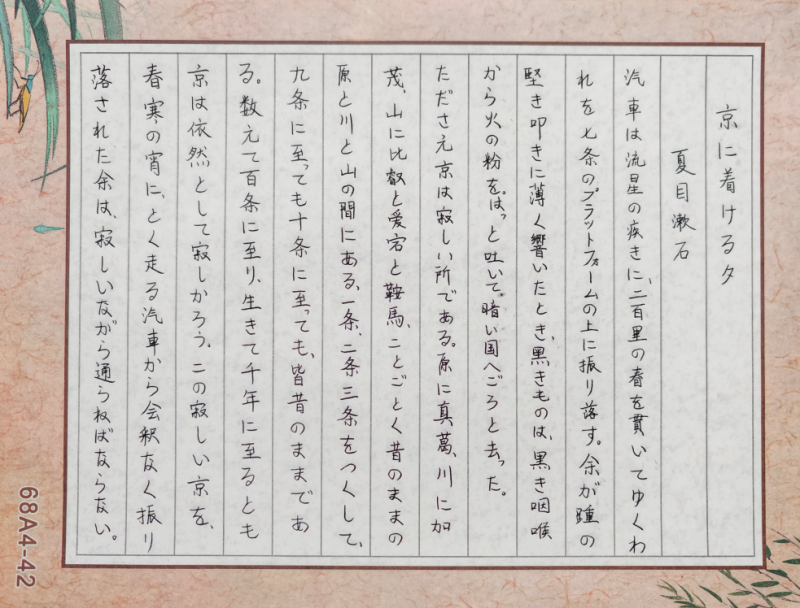 京に着ける夕
夏目漱石
汽車は流星の疾きに、二百里の春を貫いてゆくわ
れを七条のプラットフォームの上に振り落す。余が踵の
堅き叩きに薄く響いたとき、黒きものは、黒き咽喉
から火の粉を。はっと吐いて。暗い国へごろと去った。
たださえ京は寂しい所である。原に真葛、川に加
茂、山に比叡と愛宕と鞍馬、ことごとく昔のままの
原と川と山の間にある、一条、二条三条をつくして、
九条に至っても十条に至っても、皆昔のままであ
る。数えて百条に至り、生きて千年に至るとも
京は依然として寂しかろう。この寂しい京を、
春寒の宵に、とく走る汽車から会釈なく振り
落された余は、寂しいながら通らねばならない。
68A4-42